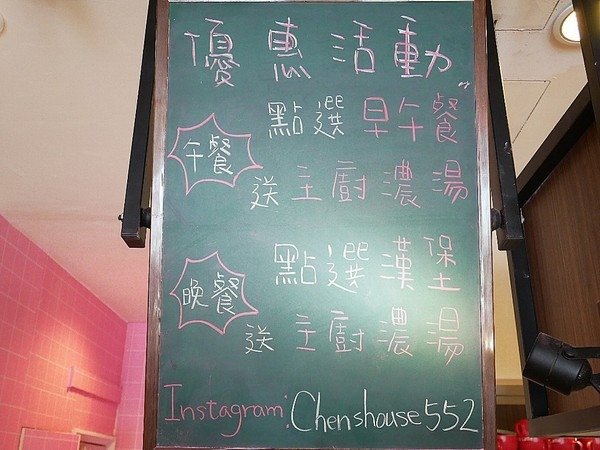 優惠活動
點選早午餐
午餐
送主廚濃湯
點選漢堡
晚餐
送主廚濃湯
Instagram: Chenshouse552